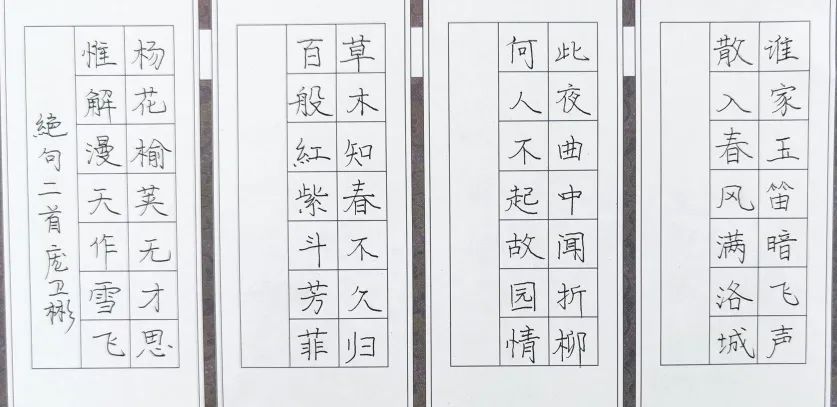 谁家玉笛暗飞声
散入春风满洛城
此夜曲中闻折柳
何人不起故园情
草木知春不久归
百般紅紫斗芳菲
杨花榆荚无才思
惟解漫天作雪飞
絶句二首庞卫彬